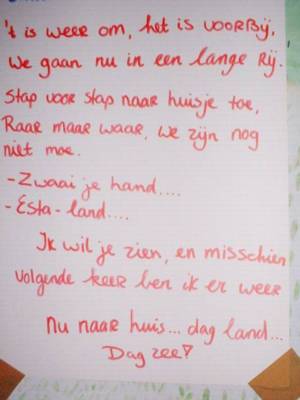 't is weer om, het is voorbij,
We gaan nu in een lange rij.
Stap voor stap naar huisje toe,
Raar maar waar, we zijn nog
niet moe.
- Zwaai je hand....
- Esta - land....
Ik wil je zien, en misschien
volgende keer ben ik er weer
Nu naar huis... dag land...
Dag zee!